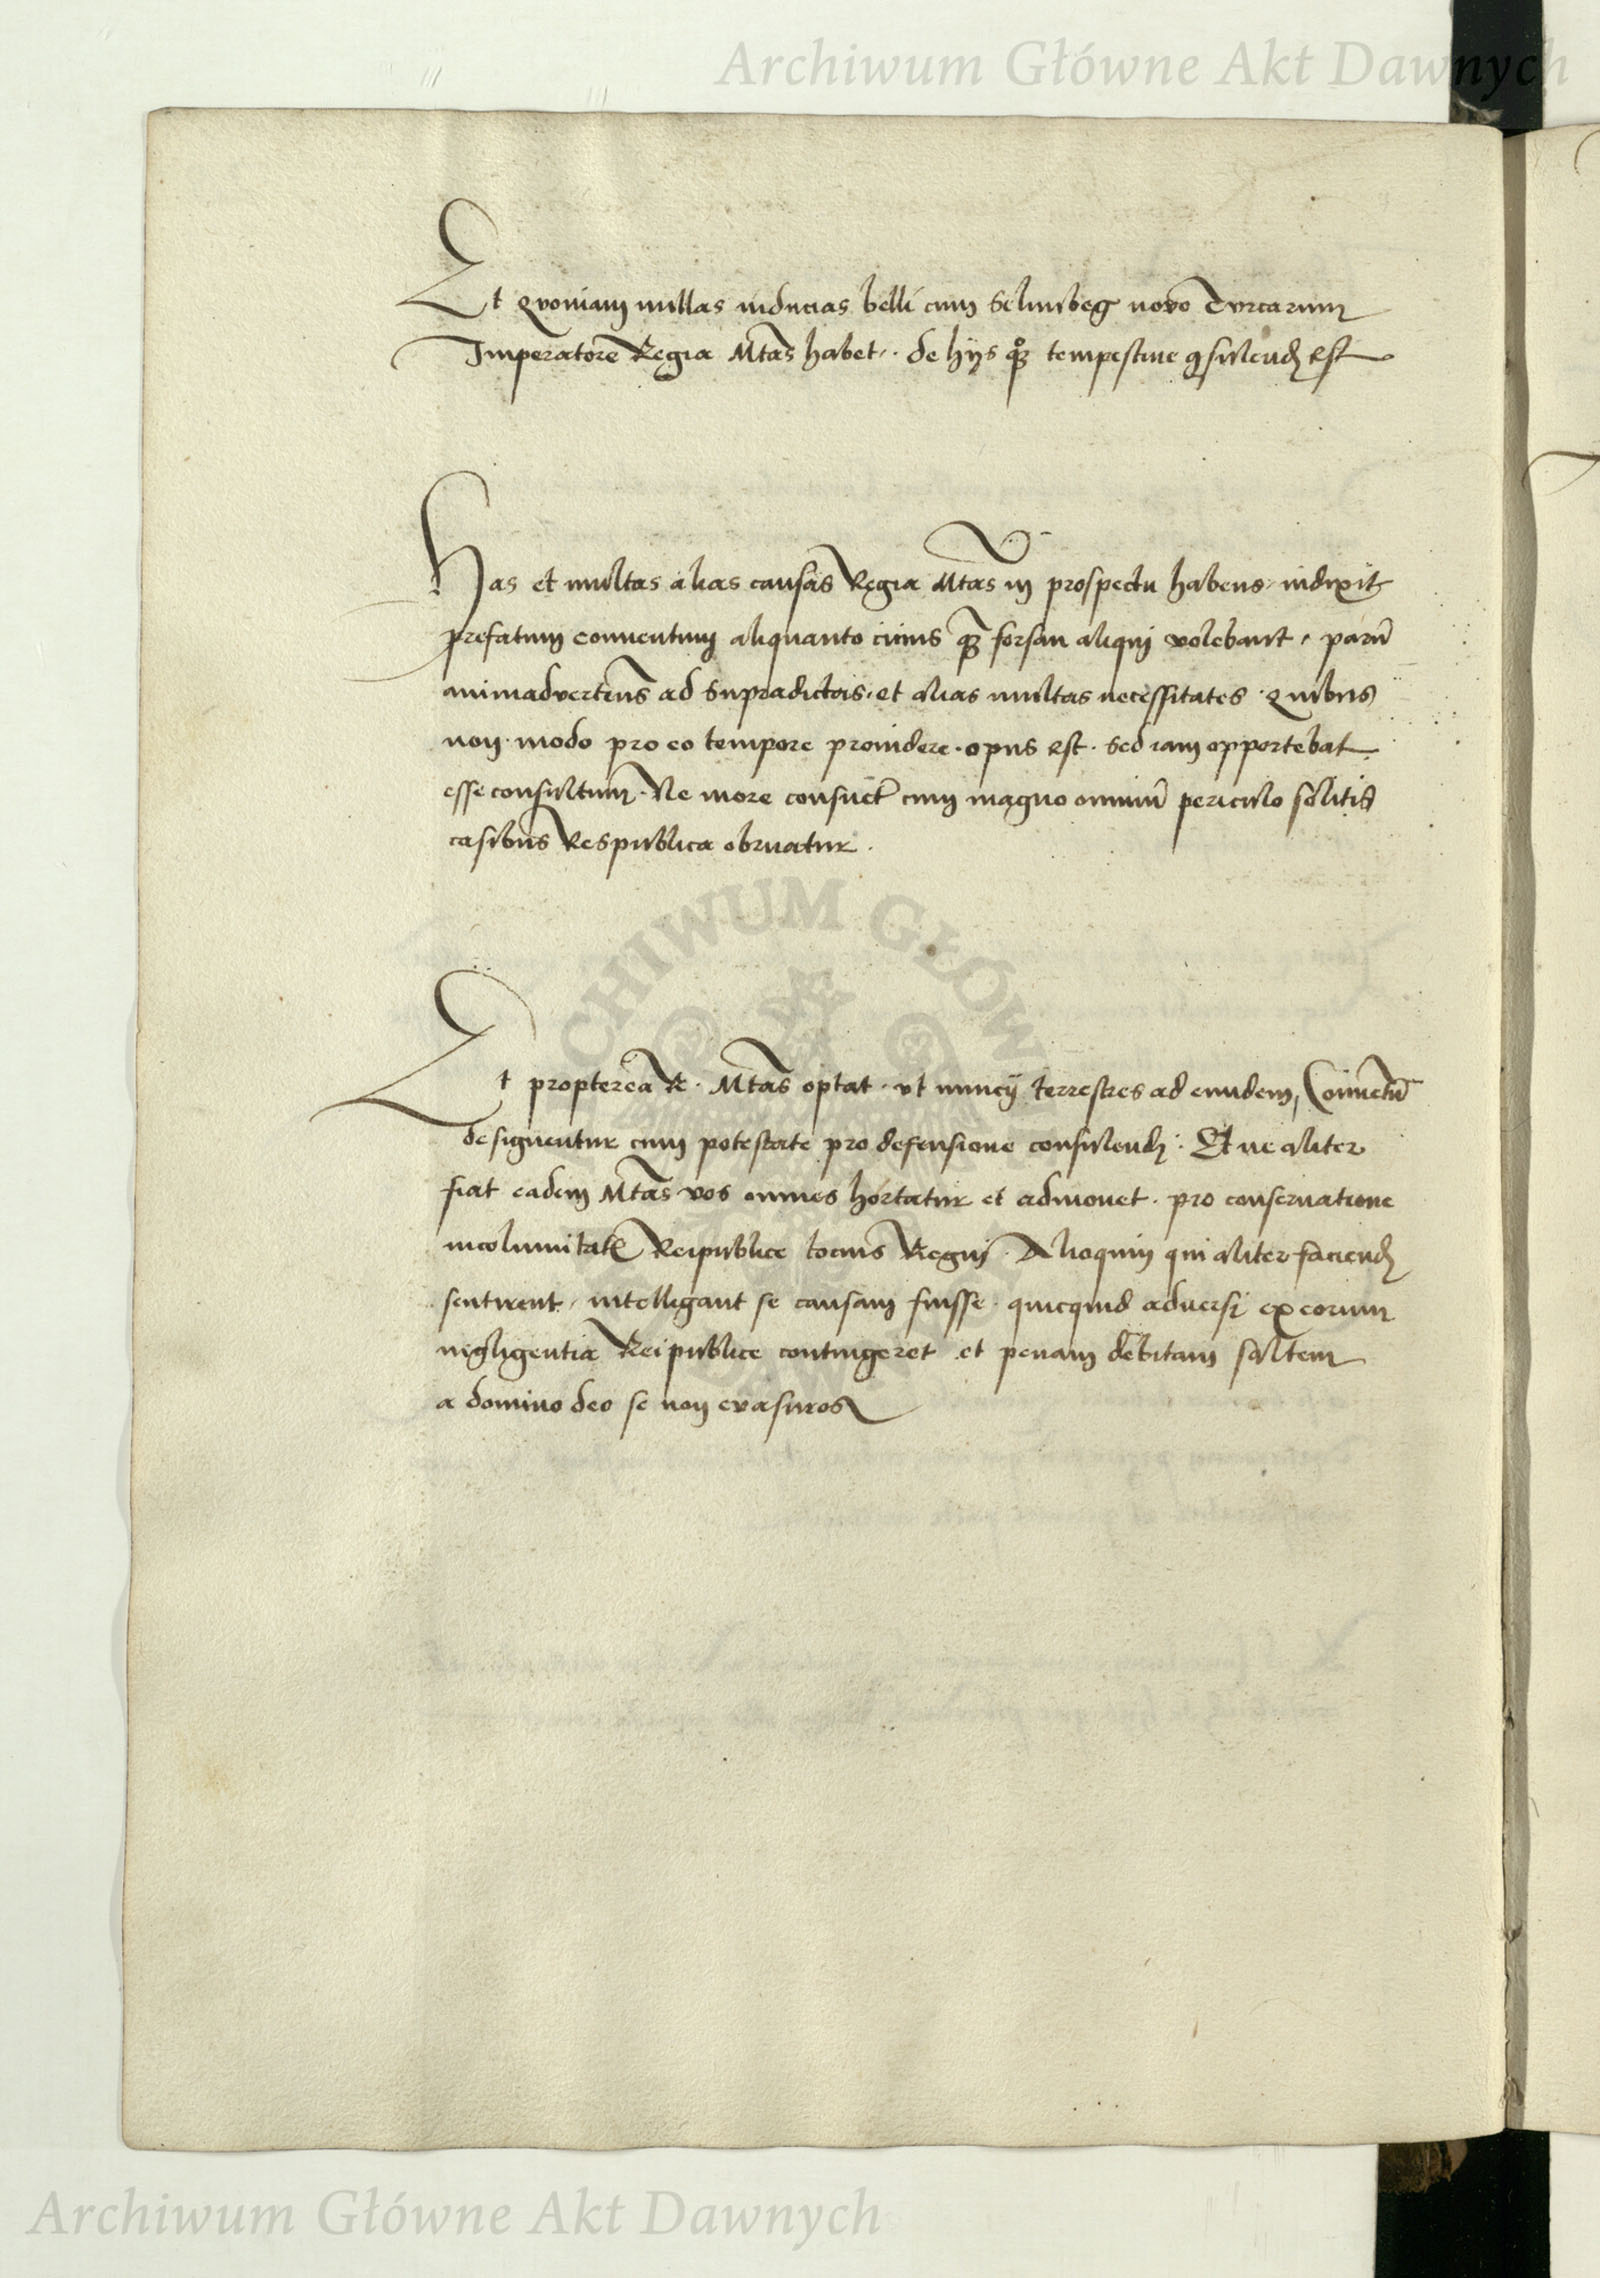 Archiwum Główne Akt Dawnych
Et Quoniam nullas inducias belli cum Selimbeg novo Turcarum
Imperatore Regia Mtas habet. de hijs qͦqȝ tempestive ꝯsulend est
Has et multas alias causas Regia Mtas in prospectu habens, indixit
prefatum conventum aliquanto cicius qȝ forsan aliqui volebant, parū
animadvertens ad supradictas, et alias multas necessitates. Quibus
non modo pro eo tempore providere. opus est. sed iam opportebat
esse consultum. Ne more consuet cum magno omniū periculo solitis
casibus Respublica obruatur.
Et propterea R. Mtas optat. ut nuncij terrestres ad eundem Conventū
designentur cum potestate pro defensione consulend. Et ne aliter
fiat eadem Mtas vos omnes hortatur et admonet. pro conservatione
incolumitatꝭ Reipublice tocius Regni. Alioquin qui aliter faciend
sentirent, intelligant se causam fuisse. quicquid adversi ex eorum
negligentia Reipublice contingeret. et penam debitam saltem
a domino deo se non evasuros
ARCHIWUM GŁÓWNE AKT DAWNYCH
Archiwum Główne Akt Dawnych